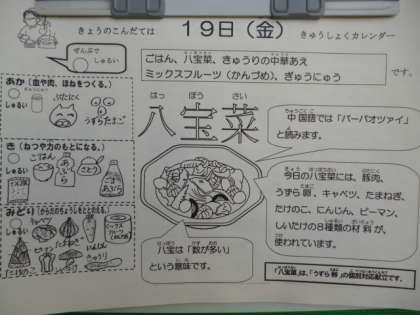 きょうのこんだては
19日（金）
きゅうしょくカレンダー
ぜんぶで
しゅるい
ごはん、八宝菜、きゅうりの中華あえ
ミックスフルーツ（かんづめ）、ぎゅうにゅう
です。
あか（血や肉、ほねをつくる。）
しゅるい
ぶたにく
うずらたまご
き（ねつや力のもとになる。）
ごはん
しゅるい
あぶら
さとう
みどり（からだのちょうしをととのえる。）
しゅるい
ミックスフルーツ
たけのこ
きゅうり
はっ ぽう さい
八宝菜
中国語では「パーパオツァイ」
と読みます。
今日の八宝菜には、豚肉、
うずら卵、キャベツ、たまねぎ、
たけのこ、にんじん、ピーマン、
しいたけの８種類の材料が、
使われています。
八宝は「数が多い」
という意味です。
「八宝菜」は、「うずら卵」の個別対応献立です。